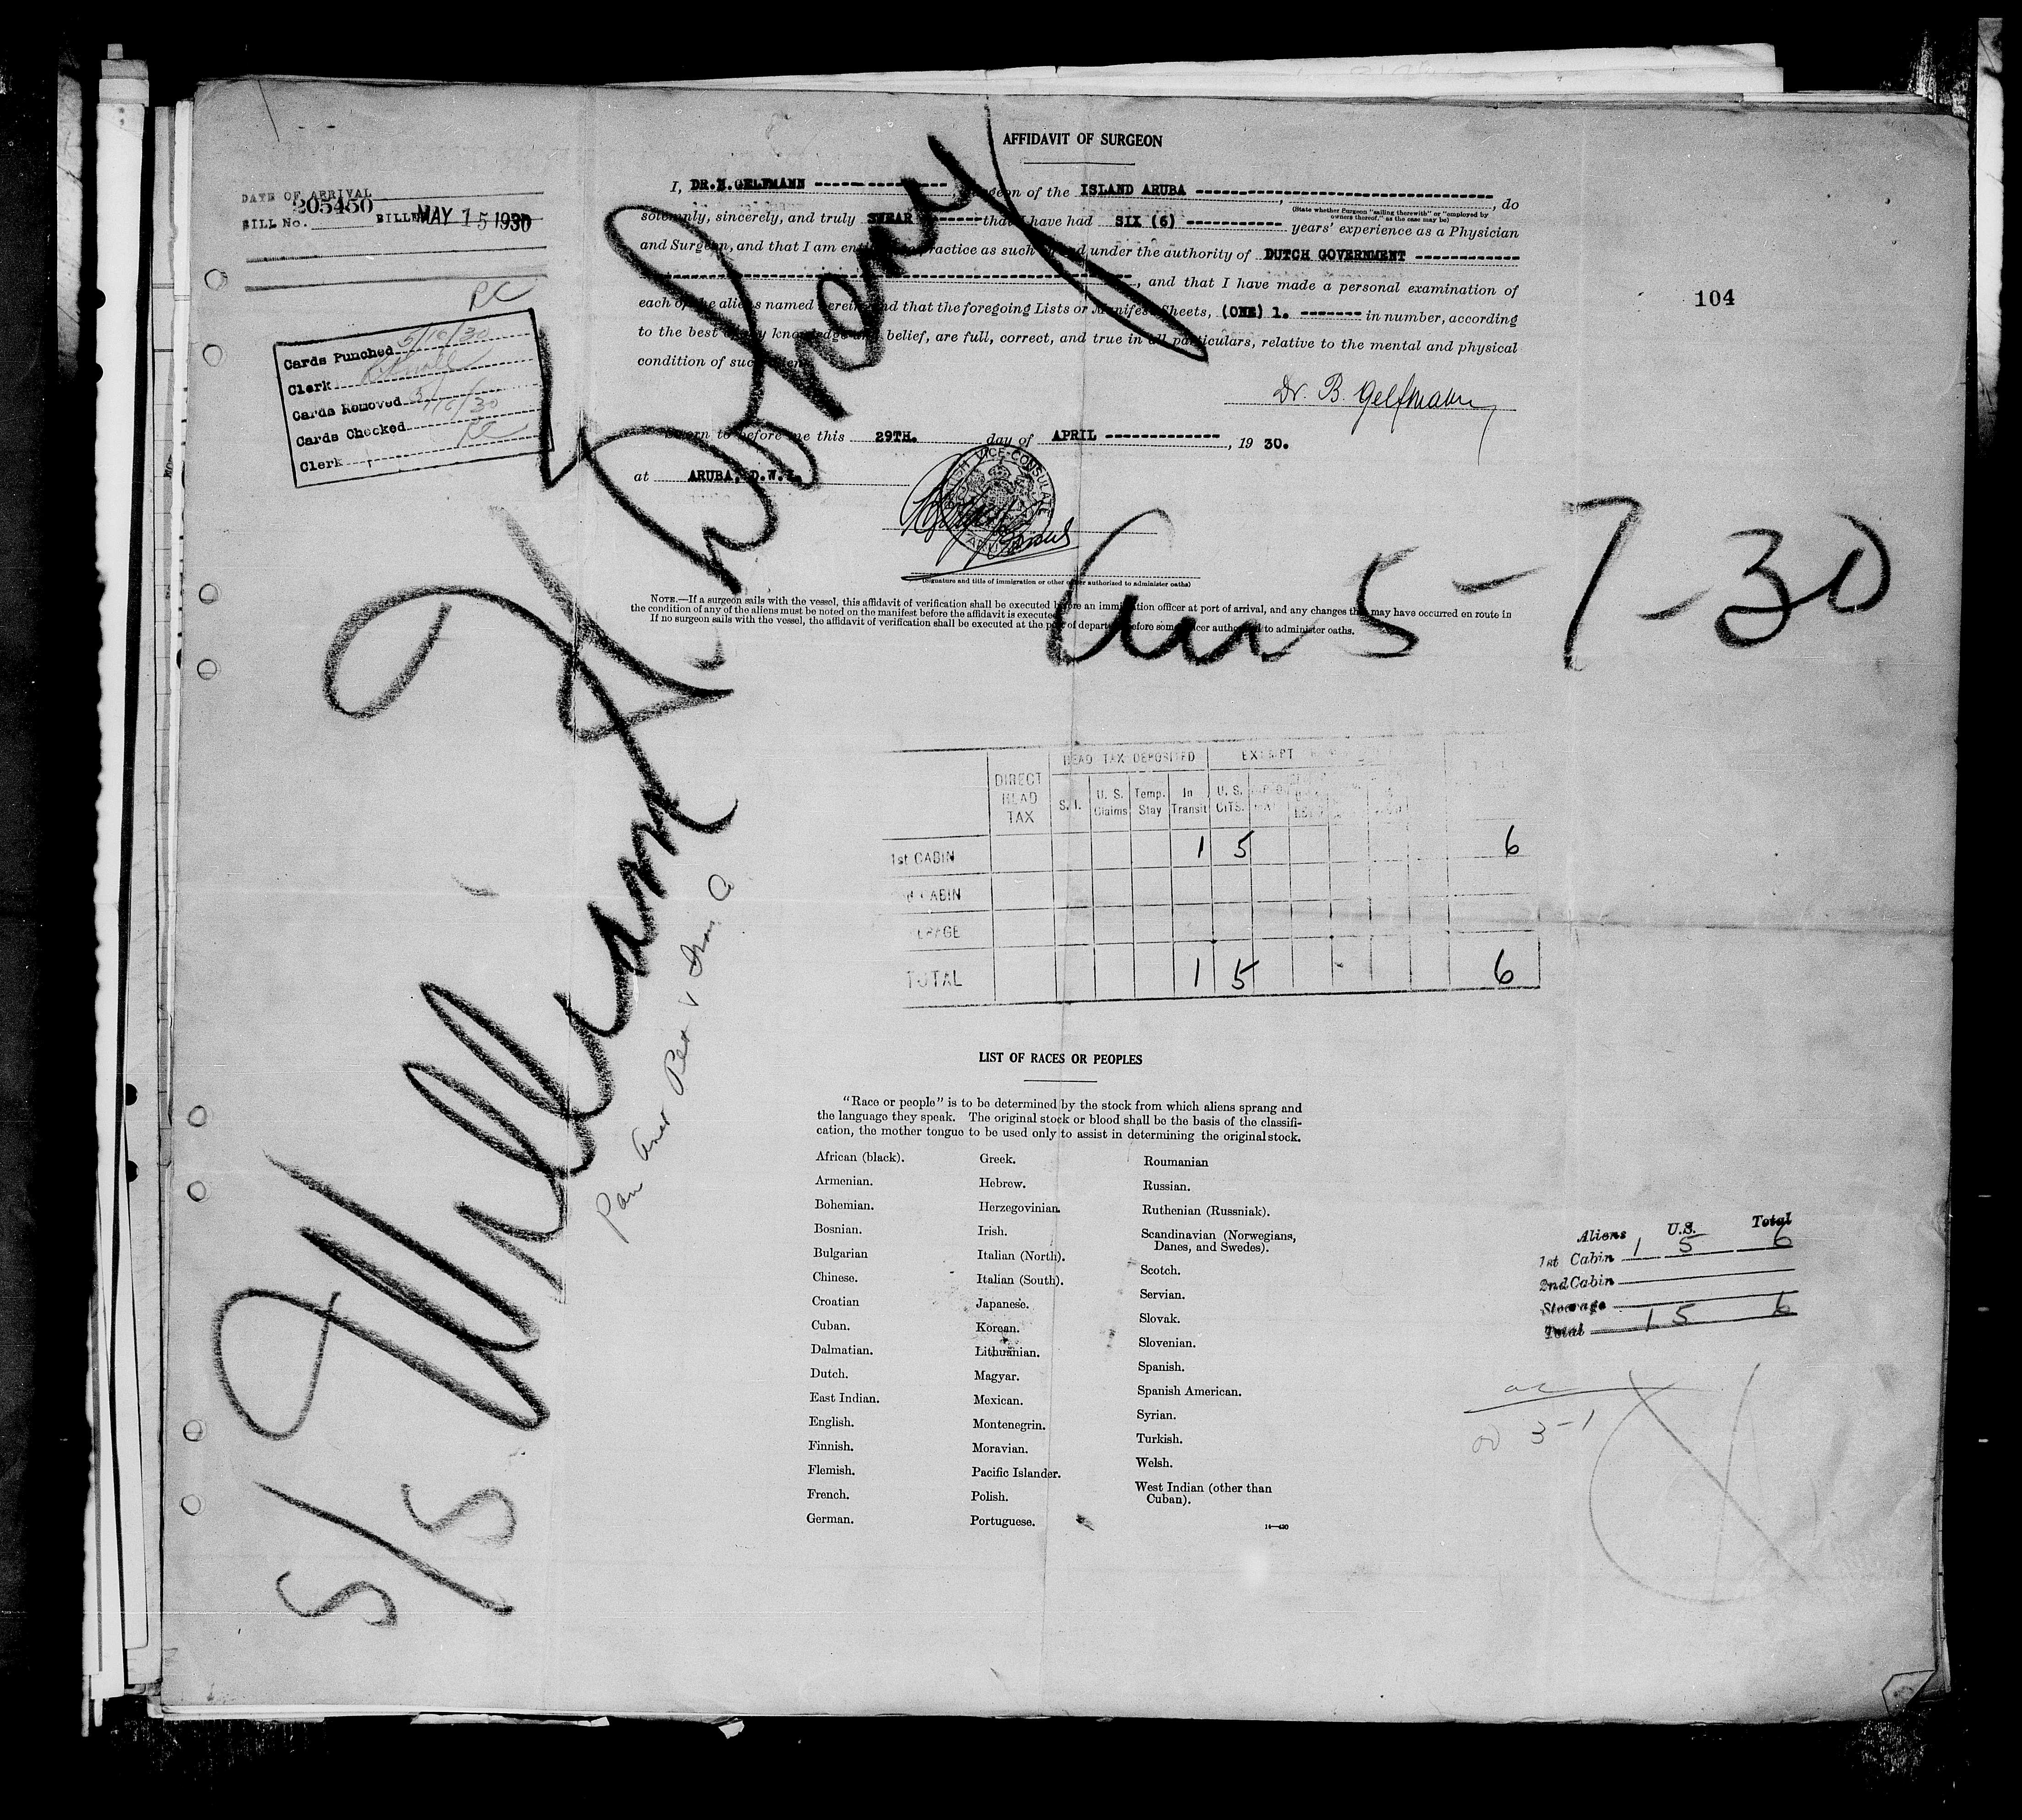 AFFIDAVIT OF SURGEON
I, DR.H.GELFMANN, Surgeon of the ISLAND ARUBA, do
(State whether Surgeon "sailing therewith" or "employed by owners thereof," as the case may be)
solemnly, sincerely, and truly SWEAR that I have had SIX (6) years' experience as a Physician
and Surgeon, and that I am entitled to practice as such by and under the authority of DUTCH GOVERNMENT
, and that I have made a personal examination of
each of the aliens named herein and that the foregoing Lists or Manifest Sheets, (ONE) 1. in number, according
to the best of my knowledge and belief, are full, correct, and true in all particulars, relative to the mental and physical
condition of such aliens.
Dr. B. Gelfmann
Sworn to before me this 29TH. day of APRIL, 19 30.
at ARUBA, D.W.I.
BRITISH VICE-CONSULATE
ARUBA
(Signature and title of immigration or other officer authorized to administer oaths)
NOTE.—If a surgeon sails with the vessel, this affidavit of verification shall be executed before an immigration officer at port of arrival, and any changes that may have occurred en route in
the condition of any of the aliens must be noted on the manifest before the affidavit is executed.
If no surgeon sails with the vessel, the affidavit of verification shall be executed at the port of departure before some officer authorized to administer oaths.
DATE OF ARRIVAL
BILL No. 205450 BILLED MAY 15 1930
PC
Cards Punched 5/10/30
Clerk
Cards Removed 5/10/30
Cards Checked
Clerk
104
S/S William H Doheny
Arr 5-7-30
Pan Amer Pet & Tran Co
HEAD TAX DEPOSITED EXEMPT
DIRECT HEAD TAX S.I. U. S. Claims Temp. Stay In Transit U. S. CITS.
1st CABIN 1 5 6
CABIN
TOTAL 1 5 6
LIST OF RACES OR PEOPLES
"Race or people" is to be determined by the stock from which aliens sprang and
the language they speak. The original stock or blood shall be the basis of the classifi-
cation, the mother tongue to be used only to assist in determining the original stock.
African (black).
Armenian.
Bohemian.
Bosnian.
Bulgarian
Chinese.
Croatian
Cuban.
Dalmatian.
Dutch.
East Indian.
English.
Finnish.
Flemish.
French.
German.
Greek.
Hebrew.
Herzegovinian.
Irish.
Italian (North).
Italian (South).
Japanese.
Korean.
Lithuanian.
Magyar.
Mexican.
Montenegrin.
Moravian.
Pacific Islander.
Polish.
Portuguese.
Roumanian
Russian.
Ruthenian (Russniak).
Scandinavian (Norwegians,
Danes, and Swedes).
Scotch.
Servian.
Slovak.
Slovenian.
Spanish.
Spanish American.
Syrian.
Turkish.
Welsh.
West Indian (other than
Cuban).
14—420
Aliens U.S. Total
1st Cabin 1 5 6
2nd Cabin
Steerage
Total 1 5 6
3-1